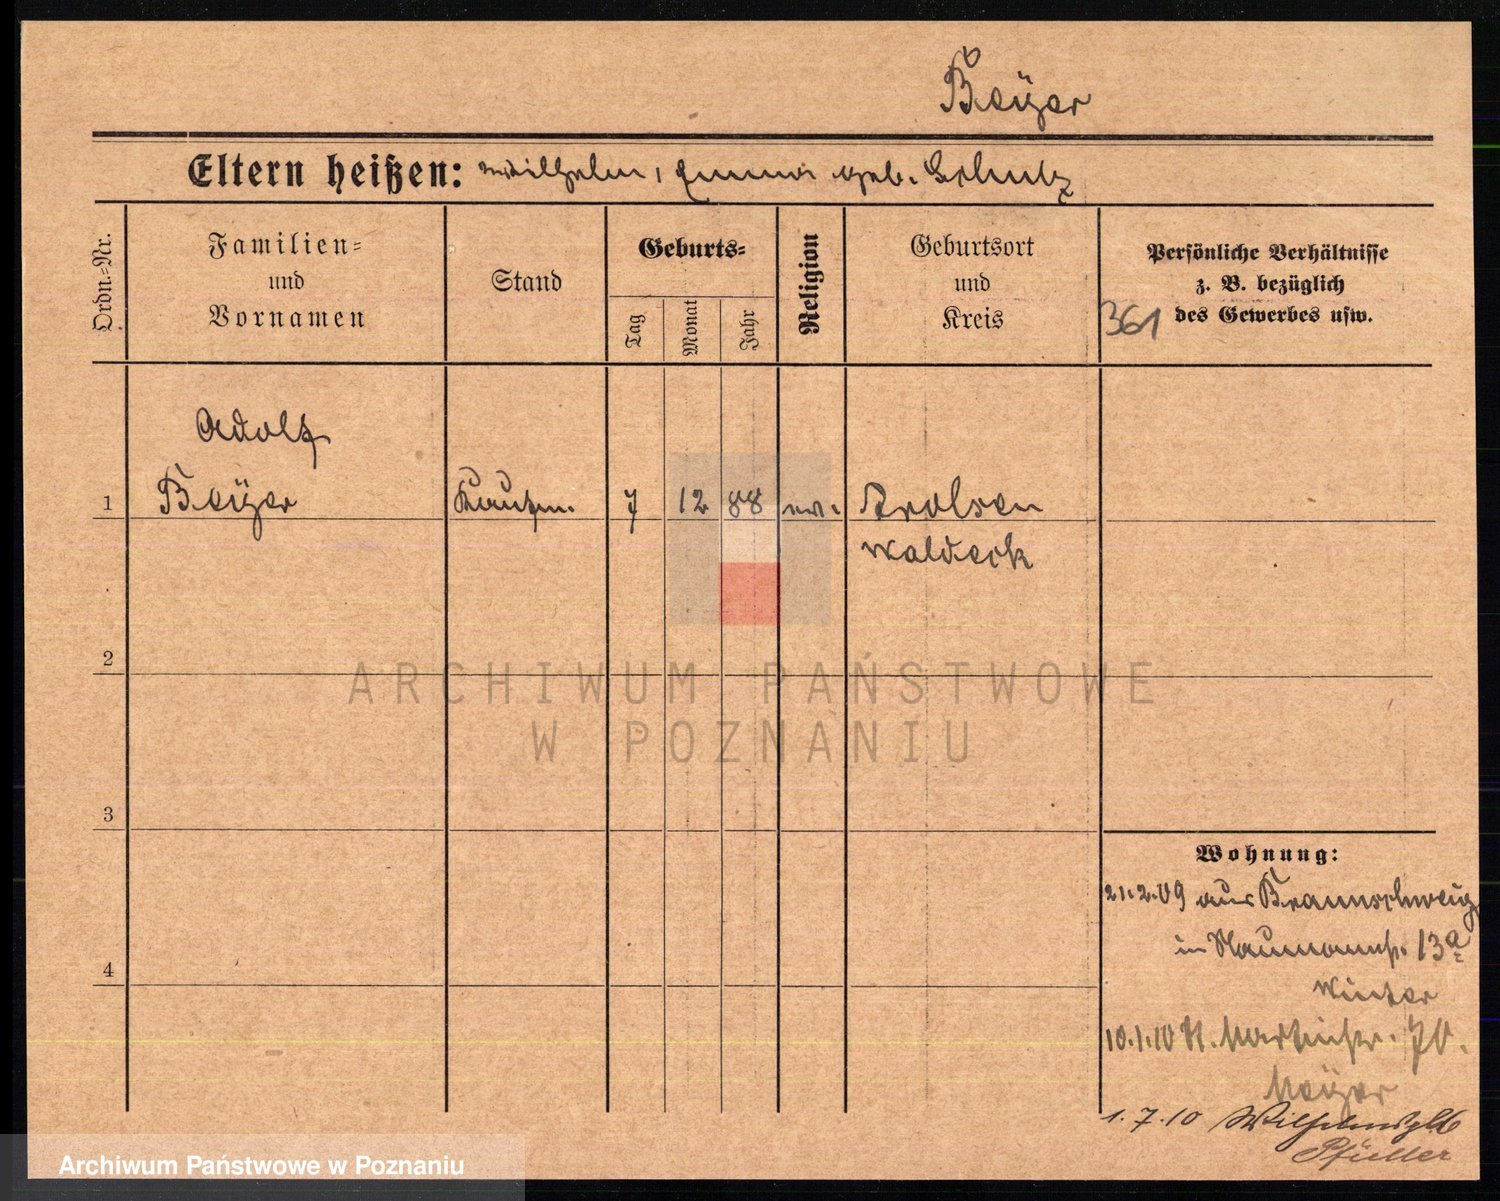 Beÿer
Eltern heißen: Wilhelm, Emma geb. Schulz
Ordn.=Nr.
Familien=
und
Vornamen
Stand
Geburts=
Tag
Monat
Jahr
Religion
Geburtsort
und
Kreis
Persönliche Verhältnisse
z. B. bezüglich
361 des Gewerbes usw.
Adolf
1 Beÿer Kaufm. 7 12 88 ev. Arolsen
Waldeck
2
ARCHIWUM PAŃSTWOWE
W POZNANIU
3
Wohnung:
21.2.09 aus Braunschweig
in Naumannstr. 13a
4
Winter
10.1.10 St. Martinstr. 70.
Meÿer
1.7.10 Wilhelmspl 6
Pfuller
Archiwum Państwowe w Poznaniu